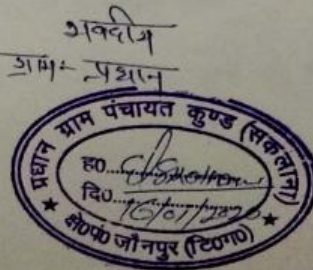 भवदीय
ग्राम- प्रधान
प्रधान ग्राम पंचायत कुण्ड (सकलाना)
ह0
दि0 16/01/2020
क्षे0पं0 जौनपुर (टि0ग0)